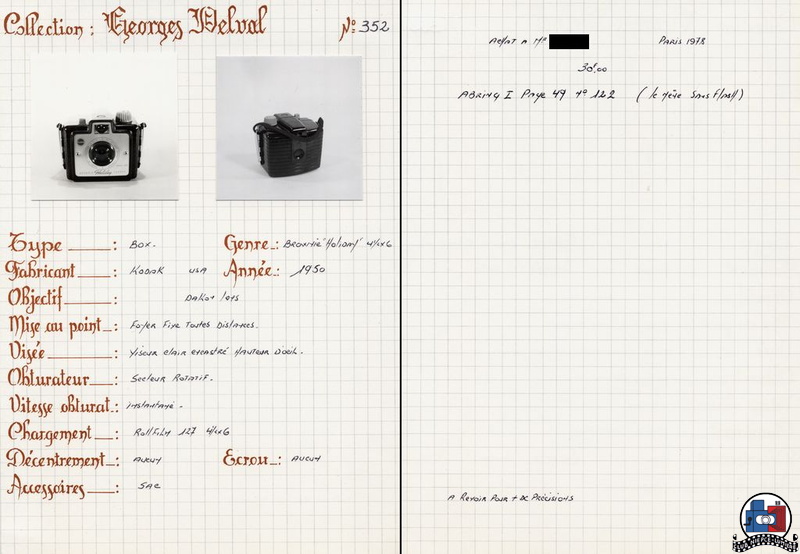 Collection : Georges Delval N° 352
Type : Box.
Genre : Brownie "Holiday" 4/4x6
Fabricant : Kodak USA
Année : 1950
Objectif : Dakon lens
Mise au point : Foyer Fixe Toutes Distances.
Visée : Viseur clair encastré Hauteur d'oeil.
Obturateur : Secteur Rotatif.
Vitesse obturat. : instantané.
Chargement : RollFilm 127 4/4x6
Décentrement : Aucun
Ecrou : Aucun
Accessoires : Sac
Achat a Mr Paris 1978
30f.00
Abring I Page 49 N° 122 (le même Sans Flash)
A Revoir Pour + de Précisions